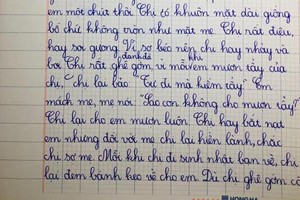 em một chút thôi. Chị có khuôn mặt dài giống
bố chứ không tròn như mặt mẹ. Chị rất điệu,
hay soi gương. Vì sợ béo nên chị hay nhảy và
bơi. Chị rất ghê gớm vì mỗi em mượn tẩy của
đanh đá khi
chị, chị lại bảo "Tự đi mà kiếm tẩy". Em
mách mẹ, mẹ nói: "Sao con không cho mượn tẩy?"
Chị lại cho em mượn luôn. Chị hay bắt nạt
em nhưng đối với mẹ chị lại hiền lành, chắc
chị sợ mẹ. Mỗi khi chị đi sinh nhật bạn về, chị
lại đem bánh kẹo về cho em. Dù chị ghê gớm
HONG HA